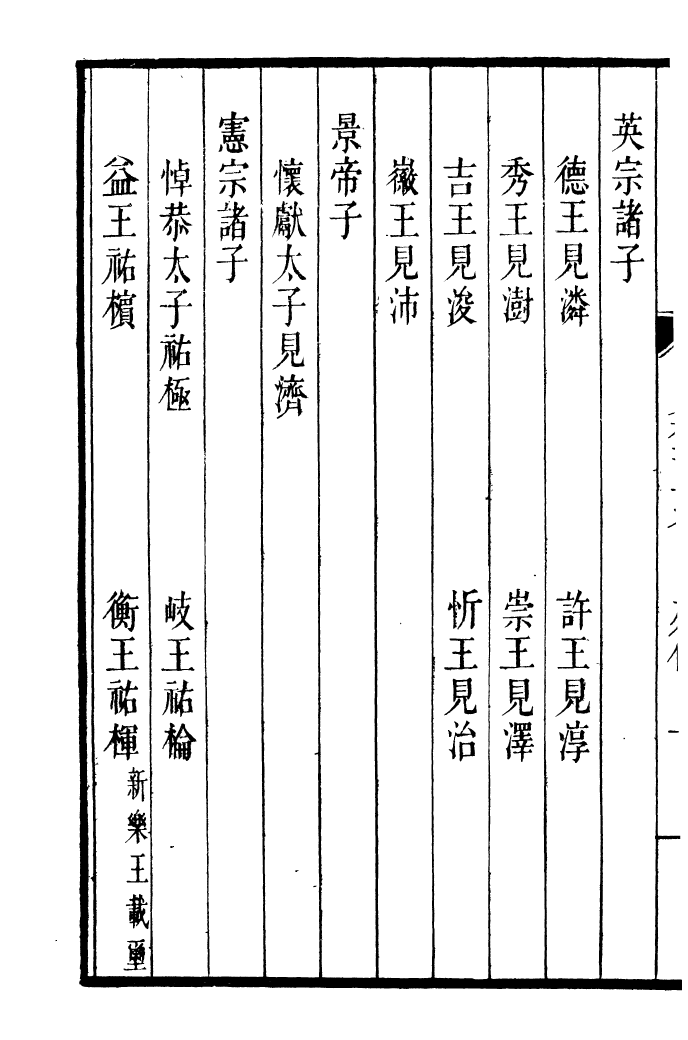 英宗諸子
德王見潾　許王見淳
秀王見澍　崇王見澤
吉王見浚　忻王見治
徽王見沛
景帝子
懷獻太子見濟
憲宗諸子
悼恭太子祐極　岐王祐棆
益王祐檳　衡王祐楎
新樂王載璽